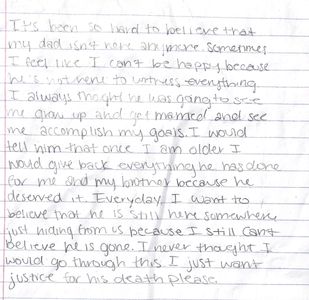 It's been so hard to believe that
my dad isn't here anymore. Sometimes
I feel like I can't be happy because
he's not here to witness everything
I always thoght he was going to see
me grow up and get married and see
me accomplish my goals. I would
tell him that once I am older I
would give back everything he has done
for me and my brother because he
deserved it. Everyday I want to
believe that he is still here somewhere
just hiding from us because I still can't
believe he is gone. I never thought I
would go through this I just want
justice for his death please.